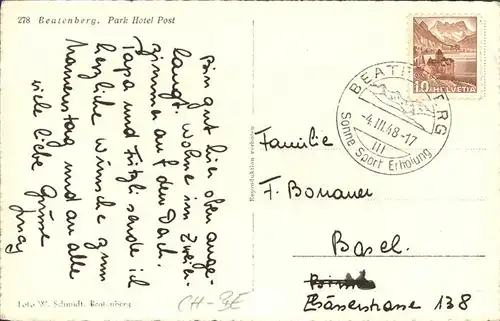 278 Beatenberg. Park Hotel Post
Bin gut hier oben ange-
langt. Wohne im zweier-
zimmer auf dem Dach.
Papa und Fritzli sende ich
herzliche Wünsche zum
Namenstag und an alle
viele liebe Grüsse
Foto W. Schmidt, Beatenberg
Reproduktion verboten
CH-BE
HELVETIA
10
BEATENBERG
-4.III.48-17
III
Sonne Sport Erholung
Familie
F. Bonauer
Basel.
Elsässerstrasse 138